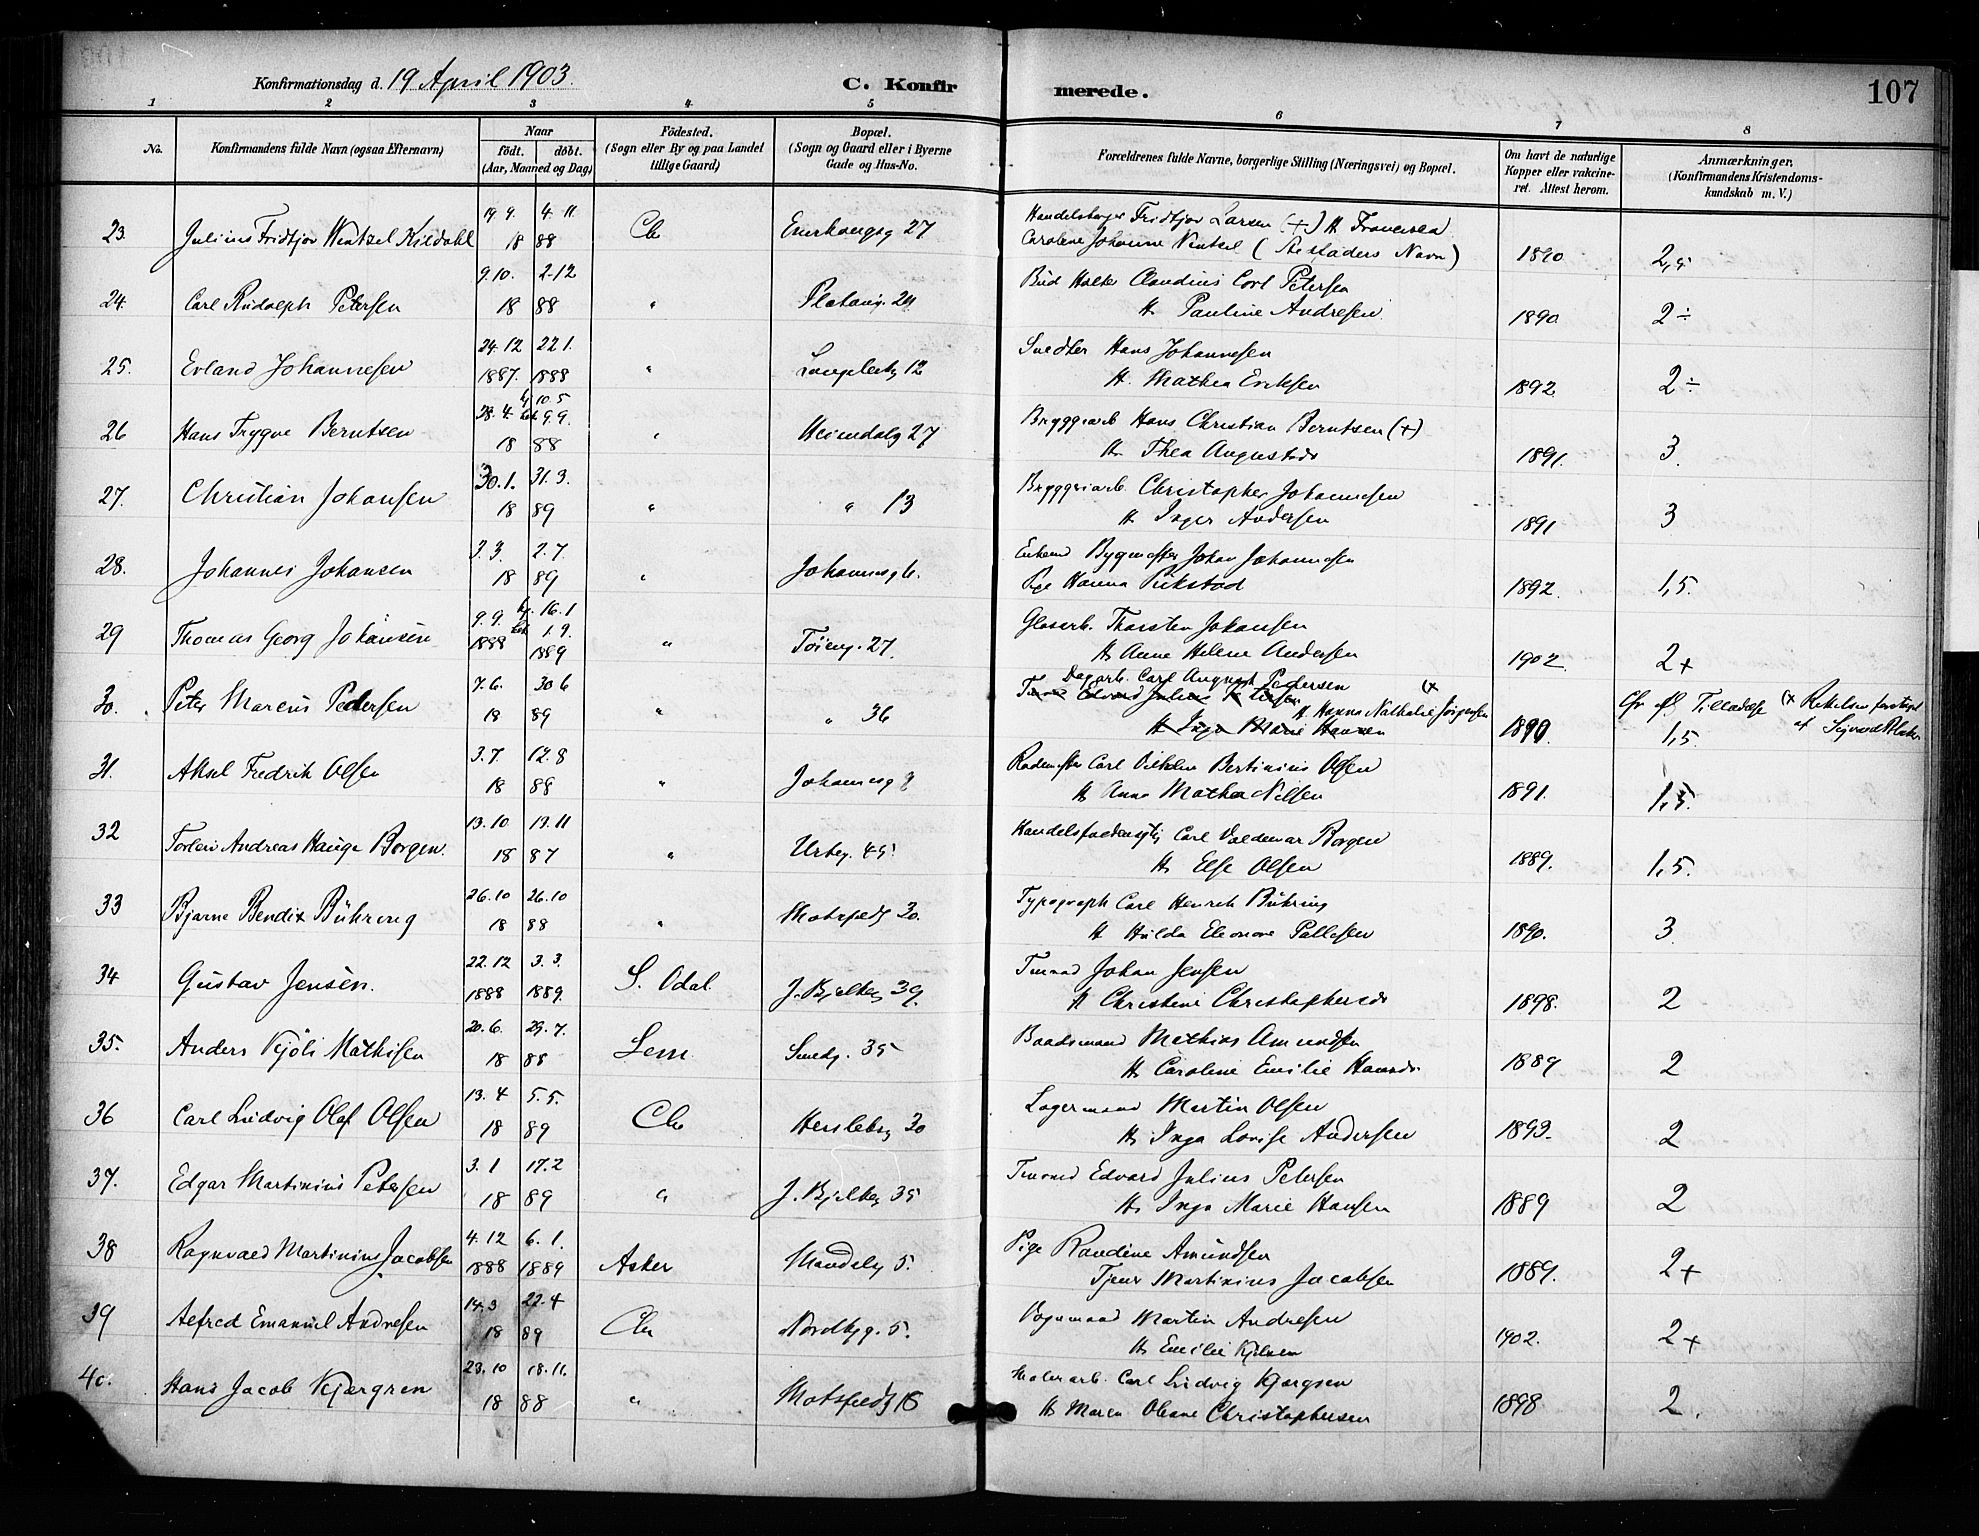 Konfirmationsdag d. 19 April 1903.
C. Konfirmerede.
107
1 2 3 4 5 6 7 8
No.
Konfirmandens fulde Navn (ogsaa Efternavn)
Naar
födt. döbt.
(Aar, Maaned og Dag)
Födested.
(Sogn eller By og paa Landet tillige Gaard)
Bopæl.
(Sogn og Gaard eller i Byerne Gade og Hus-No.
Forældrenes fulde Navne, borgerlige Stilling (Næringsvei) og Bopæl.
Om havt de naturlige Kopper eller vakcineret. Attest herom.
Anmærkninger.
(Konfirmandens Kristendomskundskab m. V.)
23. Julius Fridtjov Wentzel Kildahl 19.9. 4.11. 18 88 Chr 27
Fridtjov Larsen (+) H Francisca
Caroline Johanne Ventzel ( Navn) 1890
24. Carl Rudolph Petersen 9.10. 2.12 18 88 " Platoug. 24
Claudius Carl Petersen
H Pauline Andresen 1890 2÷
25. Erland Johannesen 24.12 22.1. 1887. 1888 " 12
Hans Johannesen
H. Mathea Eriksen 1892 2÷
26 Hans Trygve Berntsen 28.4. hj 10.5 bek 9.9. 18 88 " Heimdalg 27
Bryggeriarb Hans Christian Berntsen (+)
H Thea Augustsdr 1891. 3.
27. Christian Johansen 30.1. 31.3. 18 89 " " 13
Bryggeriarb. Christopher Johannesen
H Inger Andersen 1891 3
28. Johannes Johansen 3.3. 2.7. 18 89 " Johannesg 6.
Enkemd Bygmester Johan Johannesen
Pige Hanna 1892. 1,5.
29 Thomas Georg Johansen 9.9. 1888 hj. 16.1 bek 1.9. 1889 " Töieng. 27.
Glasarb. Thorsten Johansen
H Anne Helene Andersen 1902 2+
30. Peter Marcus Pedersen 7.6. 30 6 18 89 " " 36
Dagarb. Carl August Pedersen (x
Tmand Edvard Julius Petersen
H Hanna Nathalie Jörgensen
H Inga Marie Hansen 1890. Tilladelse 1,5. (x Rettelsen foretaget af
31. Aksel Fredrik Olsen 3.7. 12.8 18 88 " Johannesg 8
Rodemester Carl Vilhelm Bertinius Olsen
H Anna Mathea Nilsen 1891. 1,5.
32 Andreas Hauge Borgen. 13.10 13.11 18 87 " Urteg. 45.
Carl Valdemar Borgen
H Else Olsen 1889. 1,5.
33 Bjarne Bendix Bühring 26.10 26.10 18 88 " Motzfeldg 30.
Typograph Carl Henrik Bühring
H Hulda Eleonore Pallesen 1890. 3.
34 Gustav Jensen. 22.12 3.3. 1888 1889. S. Odal. J. Bjelkeg 39.
Tmand Johan Jensen
H Christine Christophersdr 1898. 2
35. Anders Kjöli Mathisen 20.6. 29.7. 18 88 Lem Smedg. 35
Baadsmand Mathias Amundsen
H Caroline Emilie Hansdr 1889 2
36 Carl Ludvig Olaf Olsen 13.4 5.5. 18 89 Chr Herslebsg 30
Lagermand Martin Olsen
H Inga Lovise Andersen 1893. 2
37. Edgar Martinius Petersen 3.1 17.2 18 89 " J. Bjelkeg 35
Tmand Edvard Julius Petersen
H Inga Marie Hansen 1889 2
38 Ragnvald Martinius Jacobsen 4.12 6.1. 1888 1889 Asker Mandalsg 5.
Pige Randine Amundsen
Tjener Martinius Jacobsen 1889. 2+
39 Alfred Emanuel Andresen 14.3 22.4 18 89 Chr Nordbyg. 5.
Vognmand Martin Andresen
H Emilie 1902. 2+
40. Hans Jacob Kjærgren 23.10 18.11. 18 88 " Motzfeldg 16
Malerarb. Carl Ludvig Kjærgren
H Maren Oleane Christophersen 1898 2.